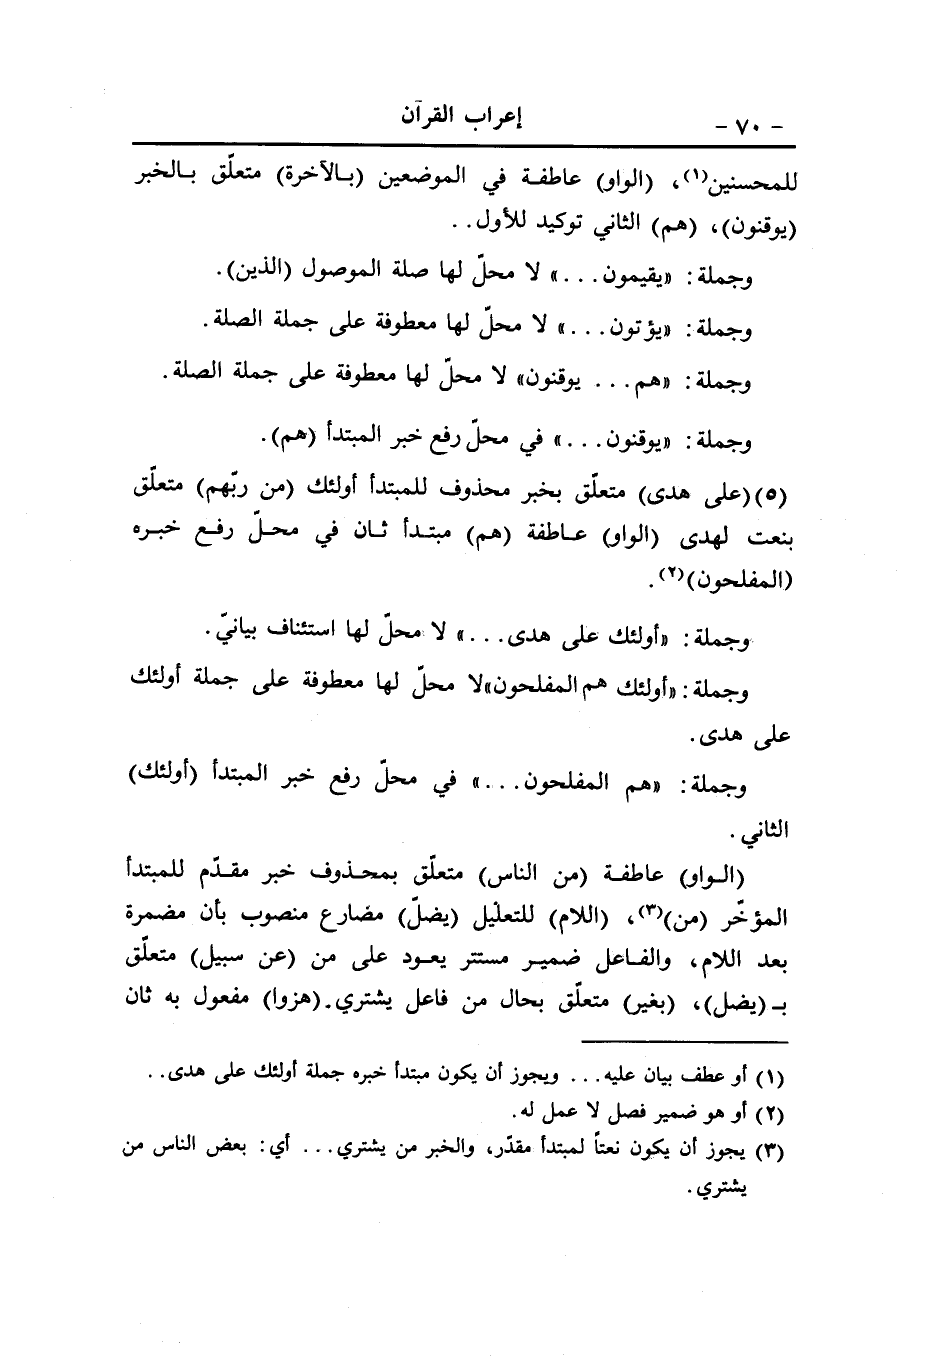 - ٧٠ -
إعراب القرآن
للمحسنين(١)، (الواو) عاطفة في الموضعين (بالآخرة) متعلّق بالخبر
(يوقنون)، (هم) الثاني توكيد للأول..
وجملة: «يقيمون...» لا محلّ لها صلة الموصول (الذين).
وجملة: «يؤتون...» لا محلّ لها معطوفة على جملة الصلة.
وجملة: «هم... يوقنون» لا محلّ لها معطوفة على جملة الصلة.
وجملة: «يوقنون...» في محلّ رفع خبر المبتدأ (هم).
(٥)(على هدى) متعلّق بخبر محذوف للمبتدأ أولئك (من ربّهم) متعلّق
بنعت لهدى (الواو) عاطفة (هم) مبتدأ ثان في محلّ رفع خبره
(المفلحون)(٢).
وجملة: «أولئك على هدى...» لا محلّ لها استئناف بيانيّ.
وجملة: «أولئك هم المفلحون» لا محلّ لها معطوفة على جملة أولئك
على هدى.
وجملة: «هم المفلحون...» في محلّ رفع خبر المبتدأ (أولئك)
الثاني.
(الواو) عاطفة (من الناس) متعلّق بمحذوف خبر مقدّم للمبتدأ
المؤخّر (من)(٣)، (اللام) للتعليل (يضلّ) مضارع منصوب بأن مضمرة
بعد اللام، والفاعل ضمير مستتر يعود على من (عن سبيل) متعلّق
بـ (يضل)، (بغير) متعلّق بحال من فاعل يشتري. (هزوا) مفعول به ثان
(١) أو عطف بيان عليه... ويجوز أن يكون مبتدأ خبره جملة أولئك على هدى..
(٢) أو هو ضمير فصل لا عمل له.
(٣) يجوز أن يكون نعتاً لمبتدأ مقدّر، والخبر من يشتري... أي: بعض الناس من
يشتري.